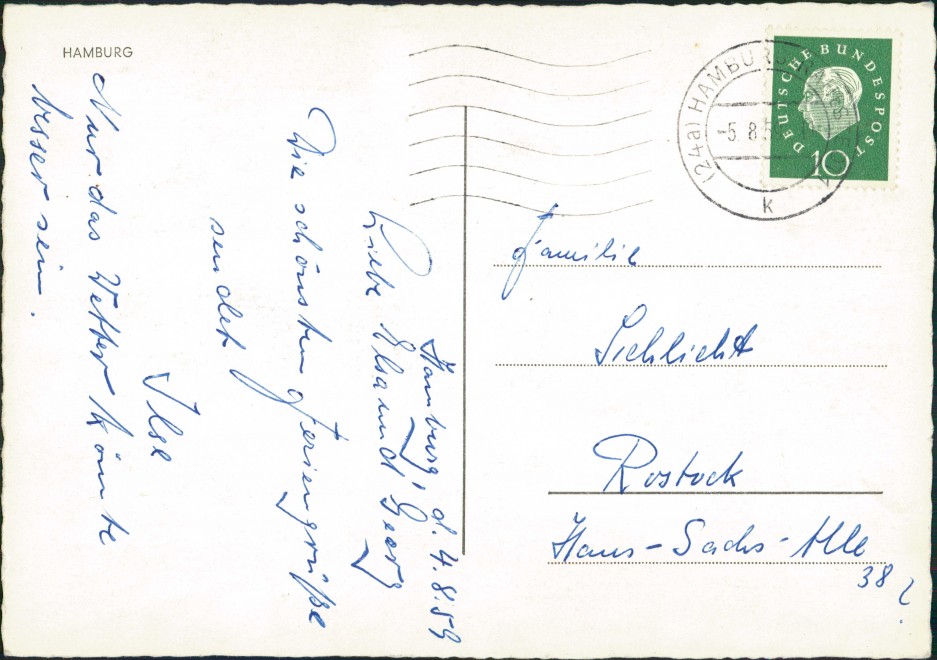 HAMBURG
Hamburg, d. 4.8.59
Liebe Elsa und Georg
Die schönsten Feriengrüße
sendet
Ilse
Nur das Wetter könnte
besser sein.
(24a) HAMBURG
-5.8.5
k
DEUTSCHE BUNDESPOST
10
Familie
Schlicht
Rostock
Hans-Sachs-Alle
38